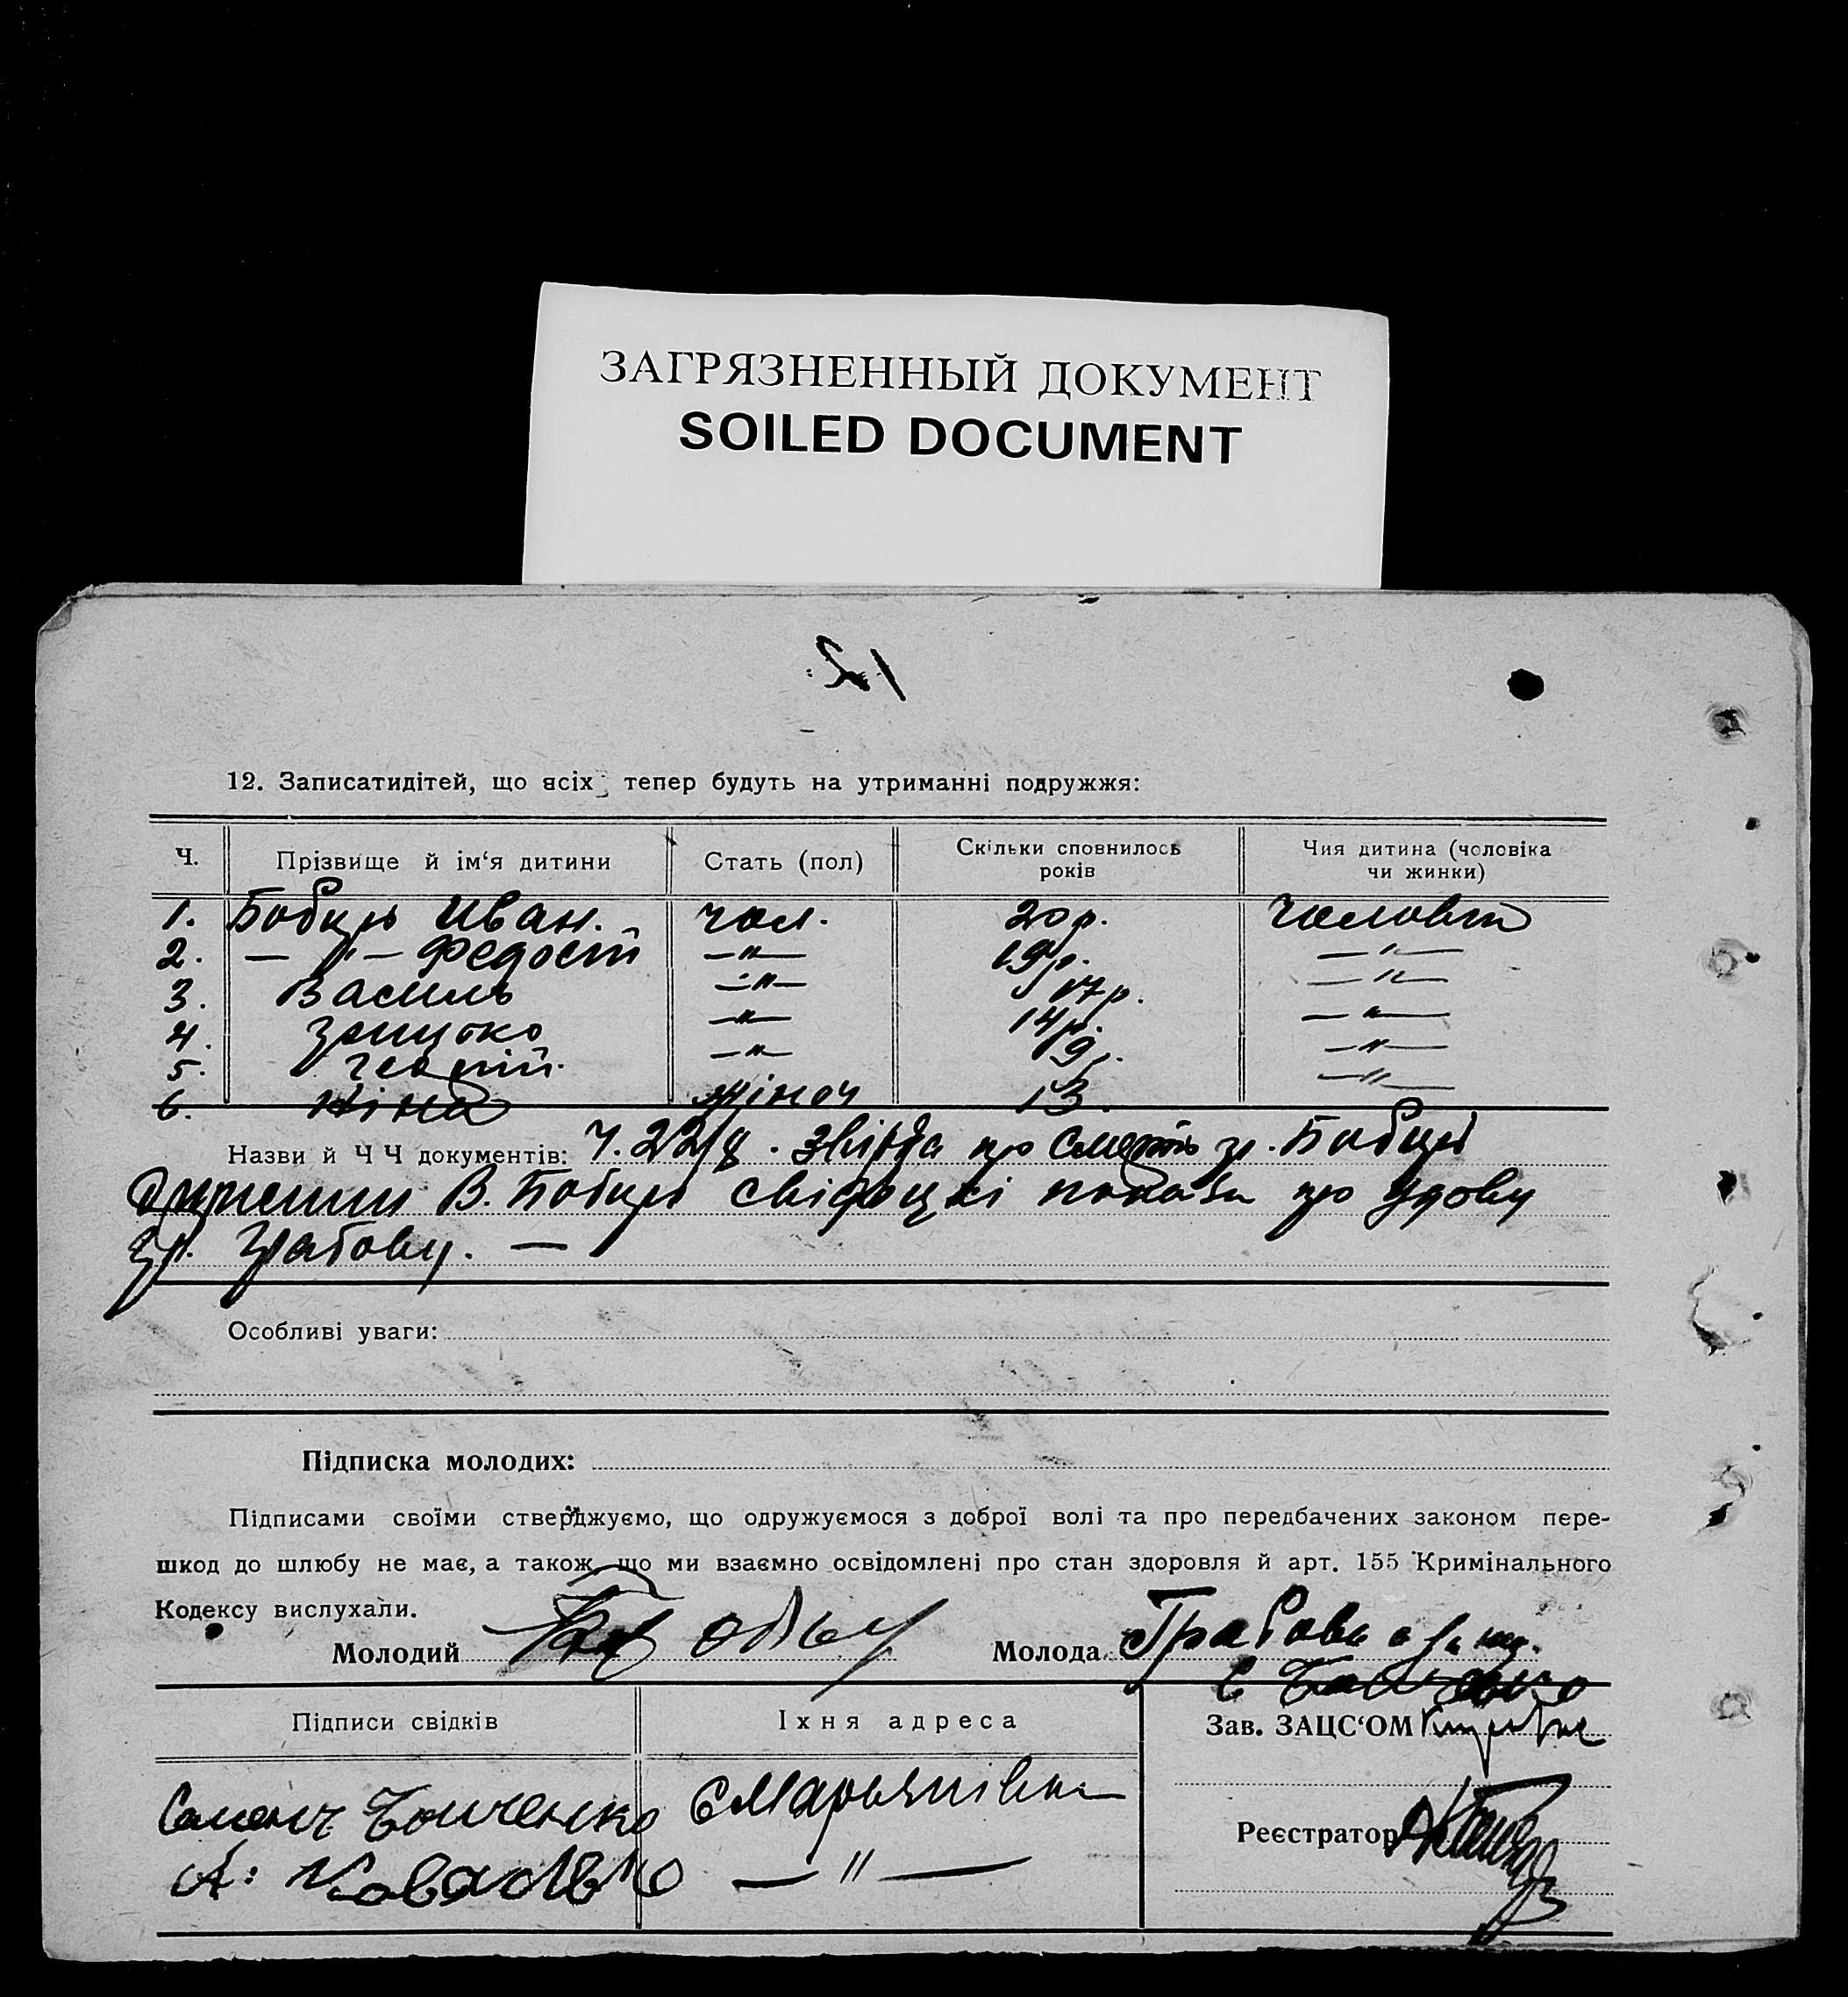 ЗАГРЯЗНЕННЫЙ ДОКУМЕНТ
SOILED DOCUMENT
12. Записатидітей, що всіх тепер будуть на утриманні подружжя:
Ч. Прізвище й ім‘я дитини Стать (пол) Скільки сповнилось років Чия дитина (чоловіка чи жинки)
1. Бобир Иван. чол. 20 р.
2. — " — Федосій — " — 19 р. — " —
3. Василь — " — 17 р. — " —
4. — " — 14 р. — " —
5. — " — 9 р. — " —
6. Ніна жіноч 13. — " —
Назви й Ч Ч документів: Ч. 22/8. про смерть гр. Бобир
В. Бобир свідоцькі про удову
гр. Грабову. —
Особливі уваги:
Підписка молодих:
Підписами своїми стверджуємо, що одружуємося з доброї волі та про передбачених законом пере-
шкод до шлюбу не має, а також, що ми взаємно освідомлені про стан здоровля й арт. 155 Кримінального
Кодексу вислухали.
Молодий Молода Грабова
Підписи свідків Їхня адреса Зав. ЗАЦС‘ОМ
Бойченко с Марьянівка
А. Коваленко — " —
Реєстратор